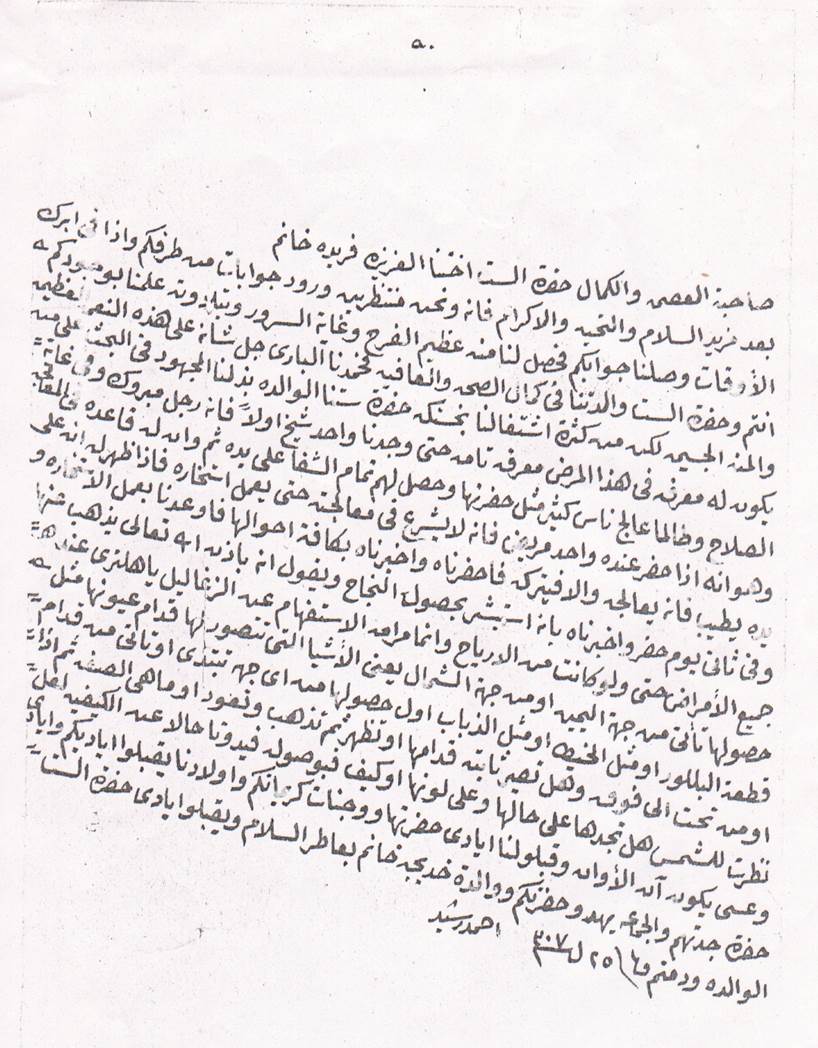 ٥٠
صاحبة العصمه والكمال حضرة الست اختنا العزيزه فريده خانم
بعد مزيد السلام والتحيه والاكرام فانه ونحن منتظرين ورود جوابات من طرفكم واذا فى ابرك
الأوقات وصلنا جوابكم فحصل لنا منه عظيم الفرح وغاية السرور وتلوته علمنا بوجودكم
انتم وحضرة الست والدتنا فى كمال الصحه والعافيه فحمدنا البارى جل شأنه على هذه النعم العظيمه
والمنه الجسيمه لكن من كثرة اشتغالنا حضرة ستنا الوالده بذلنا المجهود فى البحث على من
يكون له معرفه فى هذا المرض معرفه تامه حتى وجدنا واحد شيخ اولاً فانه رجل مبروك وفى غاية
الصلاح وطالما عالج ناس كثير مثل حضرتها وحصل لهم تمام الشفا على يده ثم وان له قاعده فى المعالجه
وهو انه اذا حضر عنده واحد مريض فانه لا يشرع فى معالجته حتى يعمل استخاره فاذا ظهر له انه على
يده يطيب فانه يعالجه والا فيتركه فاحضرناه واخبرناه بكافة احوالها فاوعدنا بعمل الاستخاره و
وفى ثانى يوم حضر واخبرناه بانه استبشر بحصول النجاح ويقول انه باذن الله تعالى يذهب عنها
جميع الأمراض حتى ولو كانت من الارياح وانما مراده الاستفهام عن الزغاليل ياهلترى عند
حصولها تأتى من جهة اليمين او من جهة الشمال يعنى الأشيا التى تتصور لها قدام عيونها مثل
قطعة البللور او مثل الخيط او مثل الذباب اول حصولها من اى جهه تبتدى او تأتى من قدام
او من تحت الى فوق وهل تصير ثابته قدامها او تظهر ثم تذهب وتعود او ما هى الصفه ثم اذا
نظرت للشمس هل تجدها على حالها وعلى لونها او كيف فبوصوله فيدونا حالا عن الكيفيه لعل
وعسى يكون آن الأوان وقبلوا لنا ايادى حضرتها ووجنات كريماتكم واولادنا يقبلوا اياديكم وايادى
حضرة جدتهم والجماعه يهدو حضرتكم ووالدة خديجه خانم بعاطر السلام ويقبلوا يادى حضرة الست
الوالده ودمتم ٢٥ ل ٣٠٧ احمد رشيد